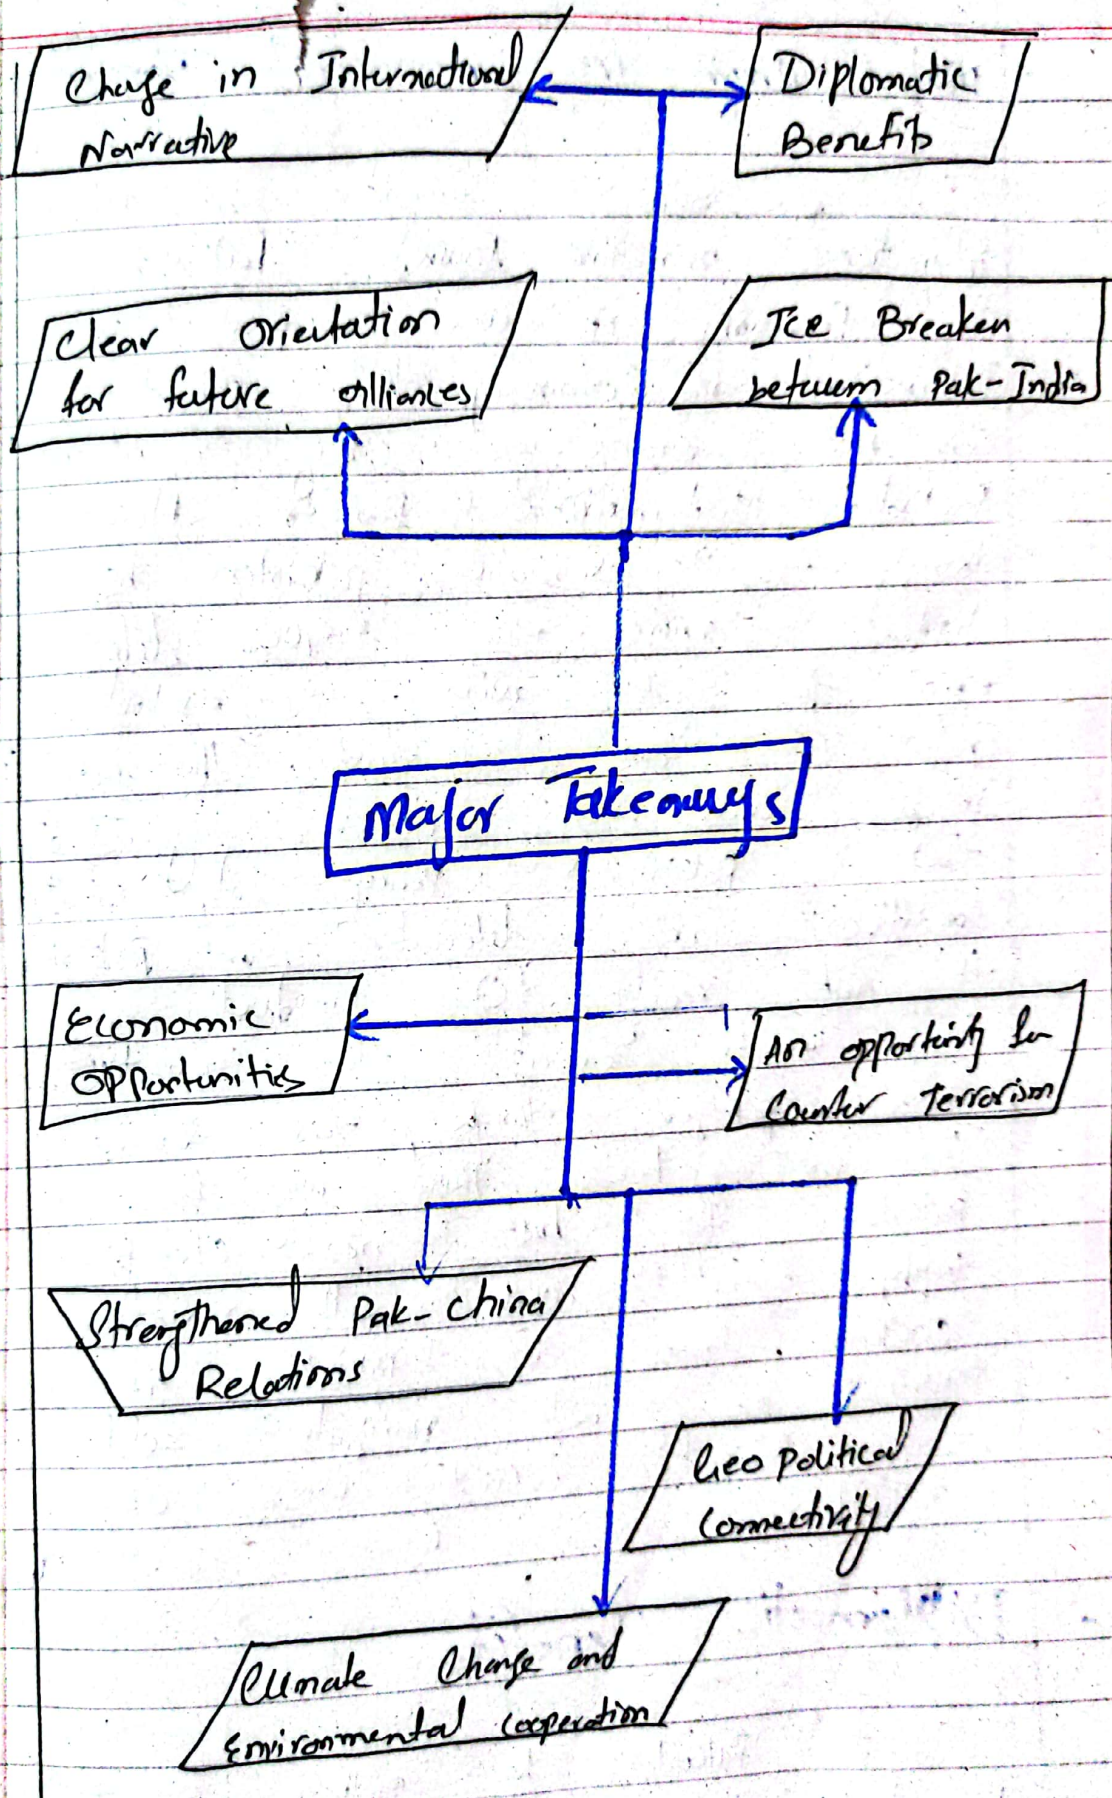 Change in International
Narrative
Diplomatic
Benefits
Clear Orientation
for future alliances
Ice Breaker
between Pak-India
Major Takeaways
Economic
opportunities
An opportunity for
Counter Terrorism
Strengthened Pak-China
Relations
Geo political
Connectivity
Climate Change and
Environmental cooperation